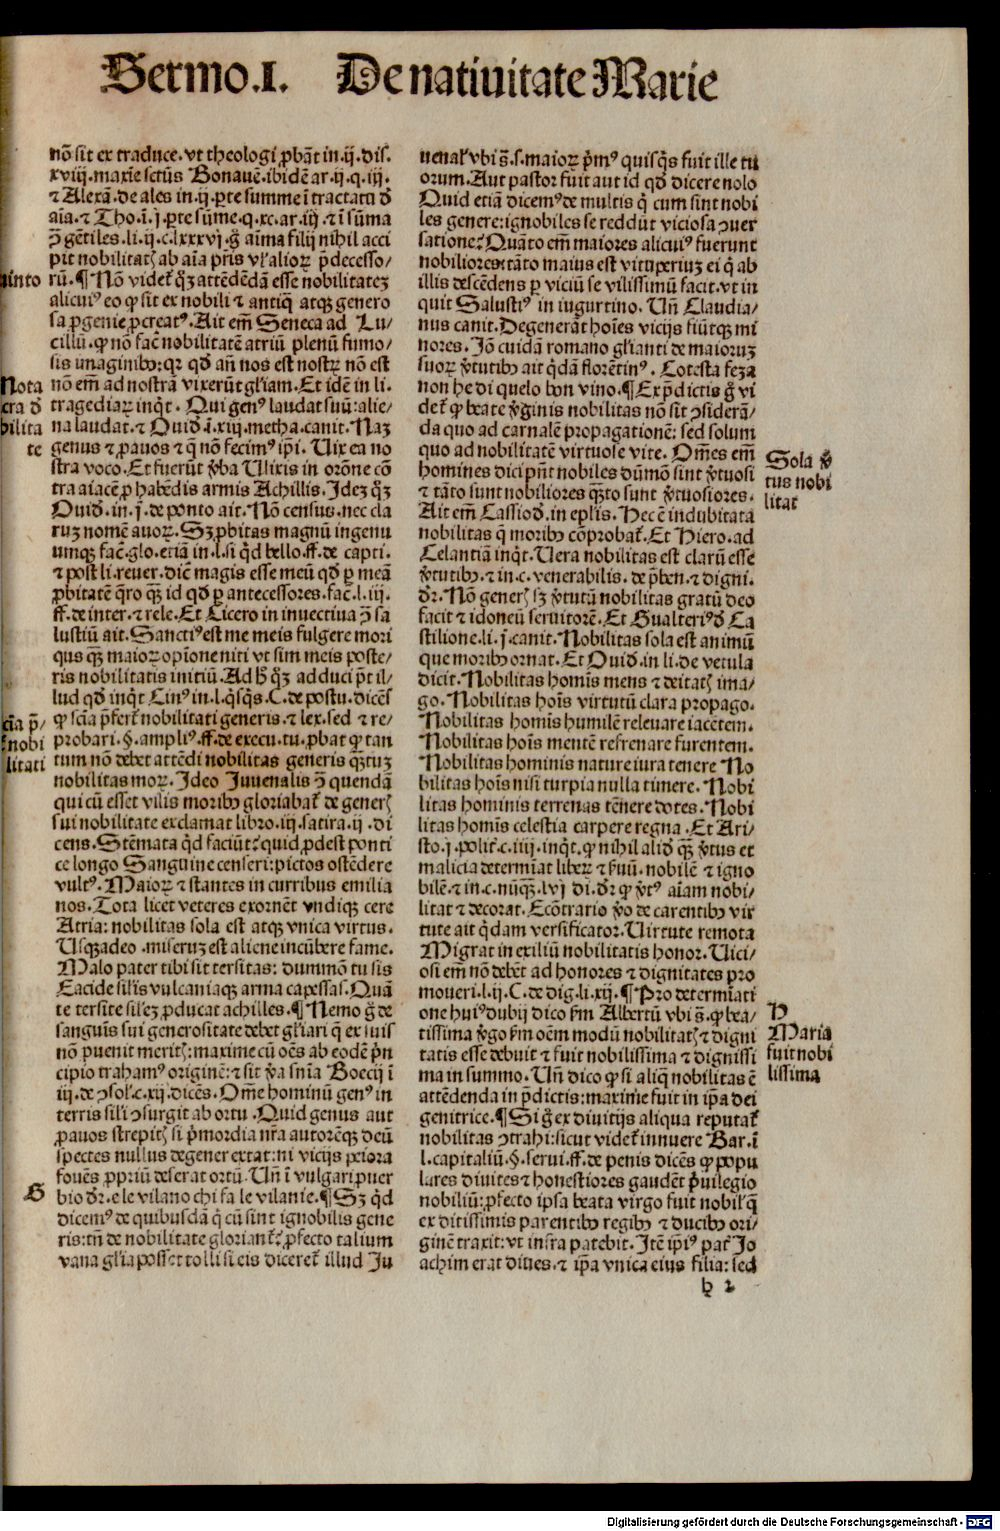 Sermo.I. De natiuitate Marie
nō sit ex traduce. vt theologi ꝓbāt in .ij. dis.
xviij. maxīe sctūs Bonauē. ibidē ar. ij. q. iij.
⁊ Alexā. de ales in .ij. ꝑte summe ī tractatu đ
aīa. ⁊ Tho. ī .j. ꝑte sūme. q. xc. ar. iij. ⁊ ī sūma
ↄ̄ gētiles. li. ij. c. lxxxvj. g̊ aīma filij nihil acci
pit nobilitatꝭ ab aīa pr̄is vl̕ alioꝝ p̄decesso/
rū. ¶ Nō videt̕ qꝫ attēdēdā esse nobilitateꝫ
alicui⁹ eo ꝙ sit ex nobili ⁊ antiq̄ atqꝫ genero
sa ꝓgenie ꝓcreat⁹. Ait em̄ Seneca ad Lu/
cillū. ꝙ nō fac̄ nobilitatē atriū plenū fumo/
sis imaginibꝰ: qꝛ qđ an̄ nos est nostꝝ nō est
nō em̄ ad nostrā vixerūt gl̕iam. Et idē in li.
tragediaꝝ inq̇t. Qui gen⁹ laudat suū: alie/
na laudat. ⁊ Ouiđ. ī .xiij. metha. canit. Naꝫ
genus ⁊ ꝓauos ⁊ q̄ nō fecim⁹ ip̄i. Uix ea no
stra voco. Et fuerūt v̄ba Ulixis in orōne cō
tra aiacē ꝓ habēdis armis Achillis. Ideꝫ qꝫ
Ouiđ. in .j. de ponto ait. Nō census. nec cla
ruꝫ nomē auoꝝ. Sꝫ ꝓbitas magnū ingenu
umqꝫ fac̄. glo. etiā in .l. si q̇d bello. ff. de capti.
⁊ post li. reuer. dic̄ magis esse meū qđ ꝑ meā
ꝓbitatē q̄ro qꝫ id qđ ꝑ antecessores. fac̄. l. iij.
ff. de inter. ⁊ rele. Et Cicero in inuectiua ↄ̄ sa
lustiū ait. Sancti⁹ est me meis fulgere mori
bus qꝫ maioꝝ opīone niti vt sim meis poste/
ris nobilitatis initiū. Ad h̄ qꝫ adduci pt̄ il/
lud qđ inq̇t Lin⁹ in .l. q̇sq̇s. C. de postu. dicēs
ꝙ scīa p̄fert̕ nobilitati generis. ⁊ lex. sed ⁊ re/
probari. §. ampli⁹. ff. de execu. tu. ꝓbat ꝙ tan
tum nō debet attēdi nobilitas generis qꝫtuꝫ
nobilitas moꝝ. Ideo Iuuenalis ↄ̄ quendā
qui cū esset vilis moribꝰ gloriabat̕ de generꝭ
sui nobilitate exclamat libro. iij. satira. ij. di
cens. Stēmata q̇d faciūt? quid ꝓdest ponti
ce longo Sanguine censeri: pictos ostēdere
vult⁹. Maioꝝ ⁊ stantes in curribus emilia
nos. Tota licet veteres exornēt vndiqꝫ cere
Atria: nobilitas sola est atqꝫ vnica virtus.
Usqꝫadeo. miseruꝫ est aliene incūbere fame.
Malo pater tibi sit tersitas: dummō tu sis
Eacide sil̕is vulcaniaqꝫ arma capessas. Quā
te tersite sil̕eꝫ ꝓducat achilles. ¶ Nemo g̊ de
sanguīs sui generositate debet gl̕iari q̄ ex suis
nō ꝓuenit meritꝭ: maxime cū oēs ab eodē p̄n
cipio traham⁹ originē: ⁊ sit v̄a sn̄ia Boecij ī
iij. de ↄsol̕. c. xij. dicēs. Om̄e hominū gen⁹ in
terris sil̕i ↄsurgit ab ortu. Quid genus aut
ꝓauos strepitꝭ si p̄mordia nr̄a autorēqꝫ deū
spectes nullus degener extat: ni vicijs peiora
fouēs ꝓpriū deserat ortū. Un̄ ī vulgari ꝓuer
bio dr̄. e le vilano chi fa le vilanie. ¶ Sꝫ q̇d
dicem⁹ de quibusdā q̇ cū sint ignobilis gene
ris: tn̄ de nobilitate gloriant̕? ꝓfecto talium
vana gl̕ia posset tolli si eis diceret̕ illud Iu
uinto
Nota
cra đ
bilita
te
cīa p̄/
nobi
litati
G
uenal̕ vbi s̄. s. maioꝝ p̄m⁹ quisq̇s fuit ille tu
orum. Aut pastor fuit aut id qđ dicere nolo
Quid etiā dicem⁹ de multis q̇ cum sint nobi
les genere: ignobiles se reddūt viciosa ↄuer
satione? Quāto em̄ maiores alicui⁹ fuerunt
nobiliores: tāto maius est vituperiuꝫ ei q̇ ab
illis descēdens ꝑ viciū se vilissimū facit. vt in
quit Salusti⁹ in iugurtino. Un̄ Claudia/
nus canit. Degenerāt hoīes vicijs fiūtqꝫ mi
nores. Iō cuidā romano gl̕ianti de maioruꝫ
suoꝝ v̄tutibꝰ ait q̇dā florētin⁹. Cotesta feza
non he di quelo bon vino. ¶ Ex p̄dictis g̊ vi
det̕ ꝙ beate v̄ginis nobilitas nō sit ↄsiderā/
da quo ad carnalē propagationē: sed solum
quo ad nobilitatē virtuose vite. Om̄es em̄
homines dici pn̄t nobiles dūmō sint v̄tuosi
⁊ tāto sunt nobiliores qꝫto sunt v̄tuosiores.
Ait em̄ Cassiođ. in epl̕is. Hec ē indubitata
nobilitas q̄ moribꝰ cōprobat̕. Et Hiero. ad
Celantiā inq̇t. Uera nobilitas est clarū esse
v̄tutibꝰ. ⁊ in .c. venerabilis. de p̄ben. ⁊ digni.
dr̄. Nō generꝭ sꝫ v̄tutū nobilitas gratū deo
facit ⁊ idoneū seruitorē. Et Gualteri⁹ đ Ca
stilione. li. j. canit. Nobilitas sola est animū
que moribꝰ ornat. Et Ouiđ. in li. de vetula
dicit. Nobilitas homīs mens ⁊ deitatꝭ ima/
go. Nobilitas hoīs virtutū clara propago.
Nobilitas homīs humilē releuare iacētem.
Nobilitas hoīs mentē refrenare furentem.
Nobilitas hominis nature iura tenere No
bilitas hoīs nisi turpia nulla timere. Nobi
litas hominis terrenas tēnere dotes. Nobi
litas homīs celestia carpere regna. Et Ari/
sto. j. polit̕. c. iiij. inq̇t. ꝙ nihil aliđ qꝫ v̄tus et
malicia determīat liberꝝ ⁊ ẜuū. nobilē ⁊ igno
bilē. ⁊ in .c. nūqꝫ. lvj di. dr̄ ꝙ v̄t⁹ aīam nobi/
litat ⁊ decorat. Ecōtrario v̄o de carentibꝰ vir
tute ait q̇dam versificator. Uirtute remota
Migrat in exiliū nobilitatis honor. Uici/
osi em̄ nō debēt ad honores ⁊ dignitates pro
moueri. l. ij. C. de dig. li. xij. ¶ Pro determīati
one hui⁹ dubij dico ẜm Albertū vbi s̄. ꝙ bea/
tissima v̄go ẜm oēm modū nobilitatꝭ ⁊ digni
tatis esse debuit ⁊ fuit nobilissima ⁊ dignissi
ma in summo. Un̄ dico ꝙ si aliq̄ nobilitas ē
attēdenda in p̄dictis: maxime fuit in ip̄a dei
genitrice. ¶ Si g̊ ex diuitijs aliqua reputat̕
nobilitas ↄtrahi: sicut videt̕ innuere Bar. ī
l. capitaliū. §. serui. ff. de penis dicēs ꝙ popu
lares diuites ⁊ honestiores gaudēt p̄uilegio
nobiliū: ꝓfecto ipsa beata virgo fuit nobil̕ q̄
ex ditissimis parentibꝰ regibꝰ ⁊ ducibꝰ ori/
ginē traxit: vt infra patebit. Itē ip̄i⁹ pat̕ Io
achim erat diues. ⁊ ip̄a vnica eius filia: sed
Sola v̄
tus nobi
litat
H
Maria
fuit nobi
lissima
b 2
Digitalisierung gefördert durch die Deutsche Forschungsgemeinschaft - DFG